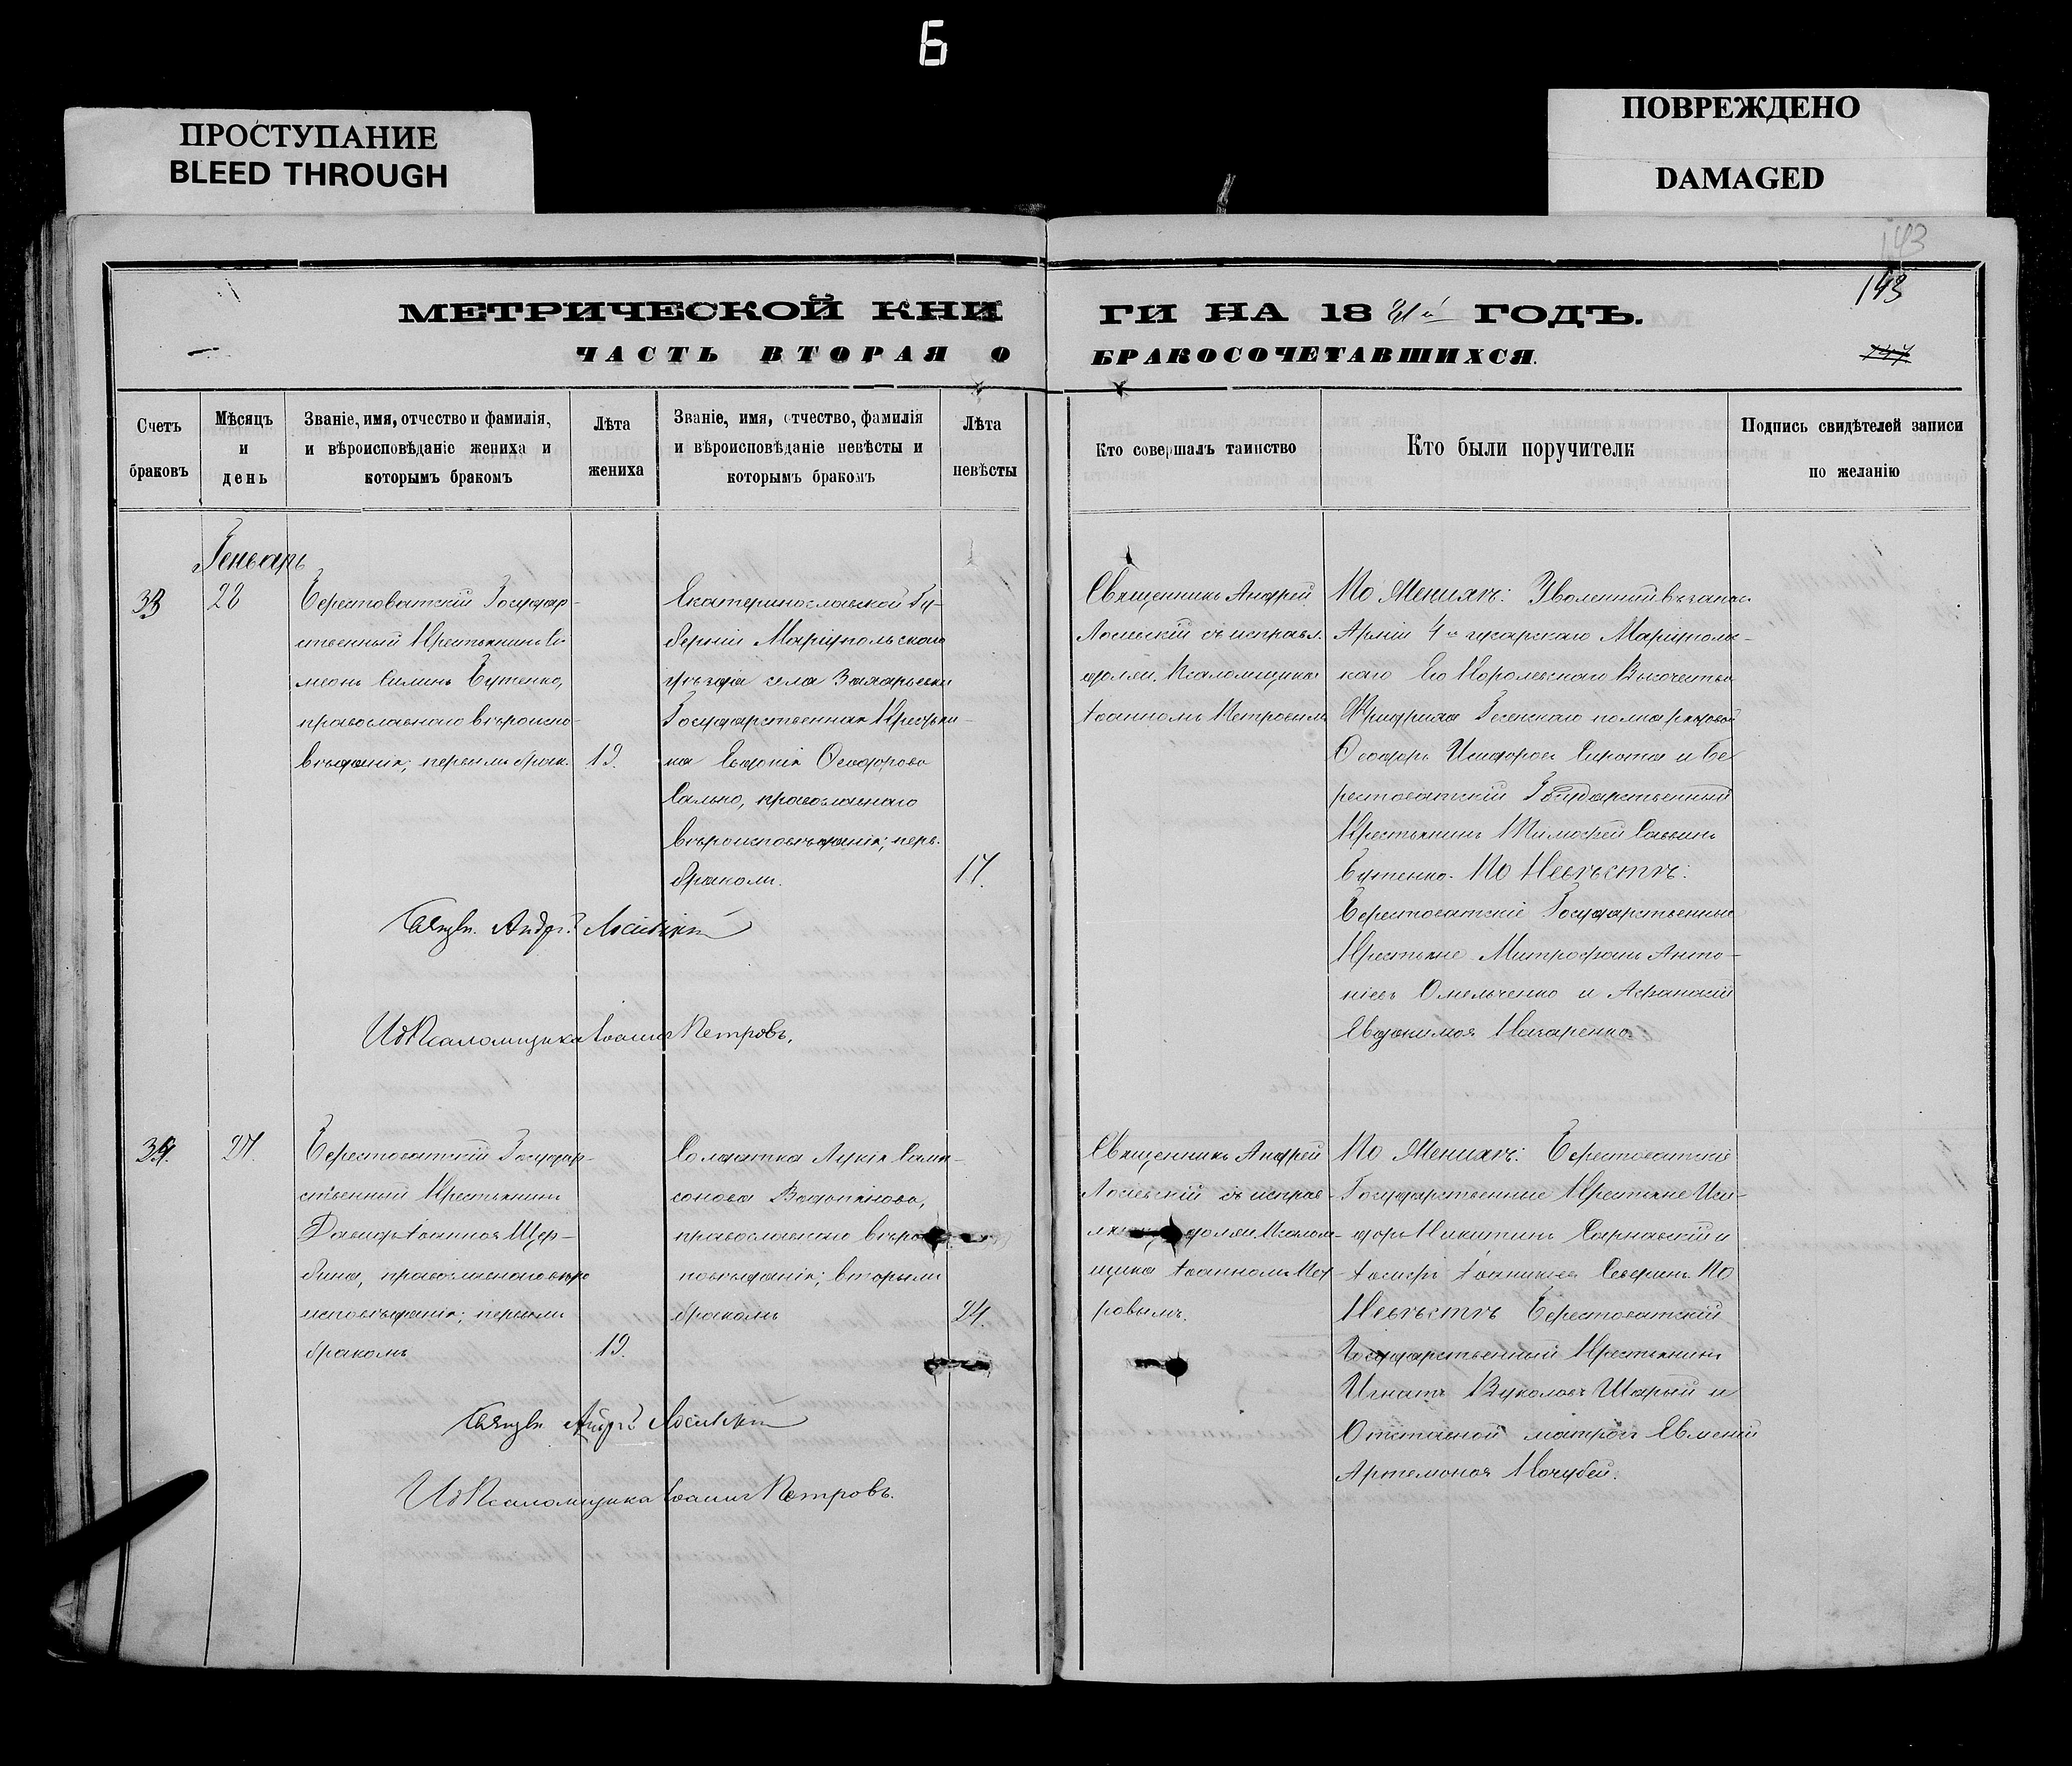 Б
ПРОСТУПАНИЕ
BLEED THROUGH
ПОВРЕЖДЕНО
DAMAGED
143
143
МЕТРИЧЕСКОЙ КНИ
ГИ НА 1881й ГОДЪ.
ЧАСТЬ ВТОРАЯ О
БРАКОСОЧЕТАВШИХСЯ.
Счетъ
браковъ
Мѣсяцъ
и
день
Званіе, имя, отчество и фамилія,
и вѣроисповѣданіе жениха и
которымъ бракомъ
Лѣта
жениха
Званіе, имя, отчество, фамилія
и вѣроисповѣданіе невѣсты и
которымъ бракомъ
Лѣта
невѣсты
Кто совершалъ таинство
Кто были поручители
Подпись свидѣтелей записи
по желанію
Генварь
33
28
Берестоватскій Государ-
ственный Крестьянинъ Си-
меонъ Бутенко,
православнаго вѣроиспо-
вѣданія; первымъ брак.
19.
Екатеринославской Гу-
берніи Маріупольскаго
уѣзда села Захарьевки
Государственная Крестьян-
ка Евдокія Ѳеодорова
православнаго
вѣроисповѣданія; перв.
бракомъ.
17.
Священникъ Андрей
Лосіевскій съ исправл.
должн. Псаломщика
Іоанномъ Петровымъ
По Женихѣ: Уволенный въ запас
Арміи 4го гусарскаго Маріуполь-
скаго Его Королевскаго Высочества
Фридриха Гесенскаго полка рядовой
Ѳеодоръ Исидоровъ Сирота и Бе-
рестоватскій Государственный
Крестьянинъ Тимофей Саввинъ
Бутенко. По Невѣстѣ:
Берестоватскіе Государственные
Крестьяне Митрофанъ Анто-
ніевъ Омельченко и Афанасій
Евдокимовъ Назаренко.
Священ. Андр. Лосіевскій
Иd Псаломщика Іоаннъ Петровъ.
34.
27.
Берестоватскій Государ-
ственный Крестьянинъ
Давидъ Іоанновъ Щер-
бина, православнаго вѣро
исповѣданія; первымъ
бракомъ
19.
Солдатка Лукія Сам-
сонова
православнаго вѣро
повѣданія; вторымъ
бракомъ
24.
Священникъ Андрей
Лосіевскій съ исправ-
должн. Псалом-
щика Іоанномъ Пет-
ровымъ.
По Женихѣ: Берестоватскіе
Государственные Крестьяне Иси-
доръ Никитинъ Сарнавскій и
Іосифъ Іоанникіевъ Северинъ. По
Невѣстѣ Берестоватскій
Государственный Крестьянинъ
Игнатъ Вуколовъ Шарый и
Отставной матросъ Евменій
Артемоновъ Кочубей.
Священ. Андр. Лосіевскій
Иd Псаломщика Іоаннъ Петровъ.